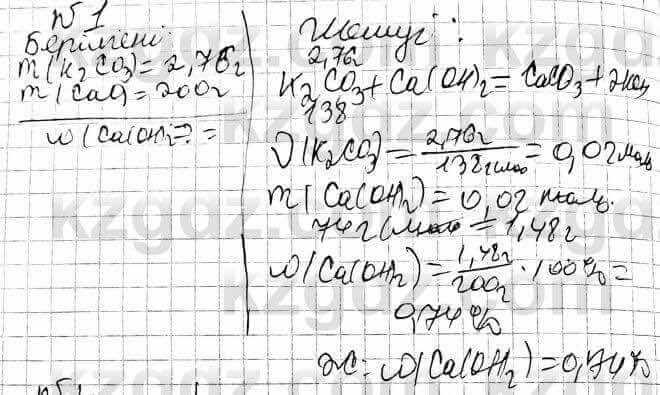 №1
Берілгені:
m(K₂CO₃)=2,76г
m(CaO)=200г
ω(Ca(OH)₂=? =
Шешуі:
2,76г
K₂CO₃+Ca(OH)₂=CaCO₃+2KOH
138
ν(K₂CO₃)=2,76г/138г/моль=0,02моль
m(Ca(OH)₂)=0,02 моль.
74г/моль=1,48г
ω(Ca(OH₂)=1,48г/200г·100%=
0,74%
Ж: ω(Ca(OH₂)=0,74%
kzgdz.com